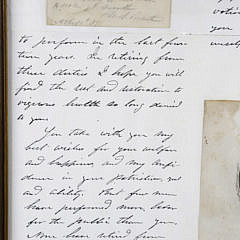 to perform in the last four
teen years. In retiring from
these duties I hope you will
find the rest and restoration to
vigorous health so long denied
to you.
You take with you my
best wishes for your welfare
and happiness, and my confi
dence in your patriotism,
and ability. But few men
have performed more labor
for the public than you.
None have retired from
you